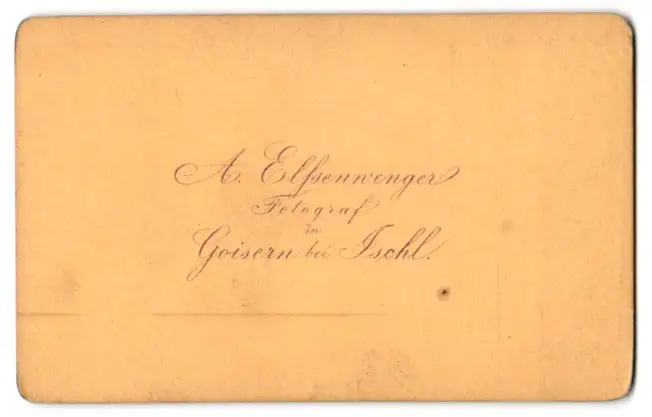 A. Elßenwenger
Fotograf
in
Goisern bei Ischl.